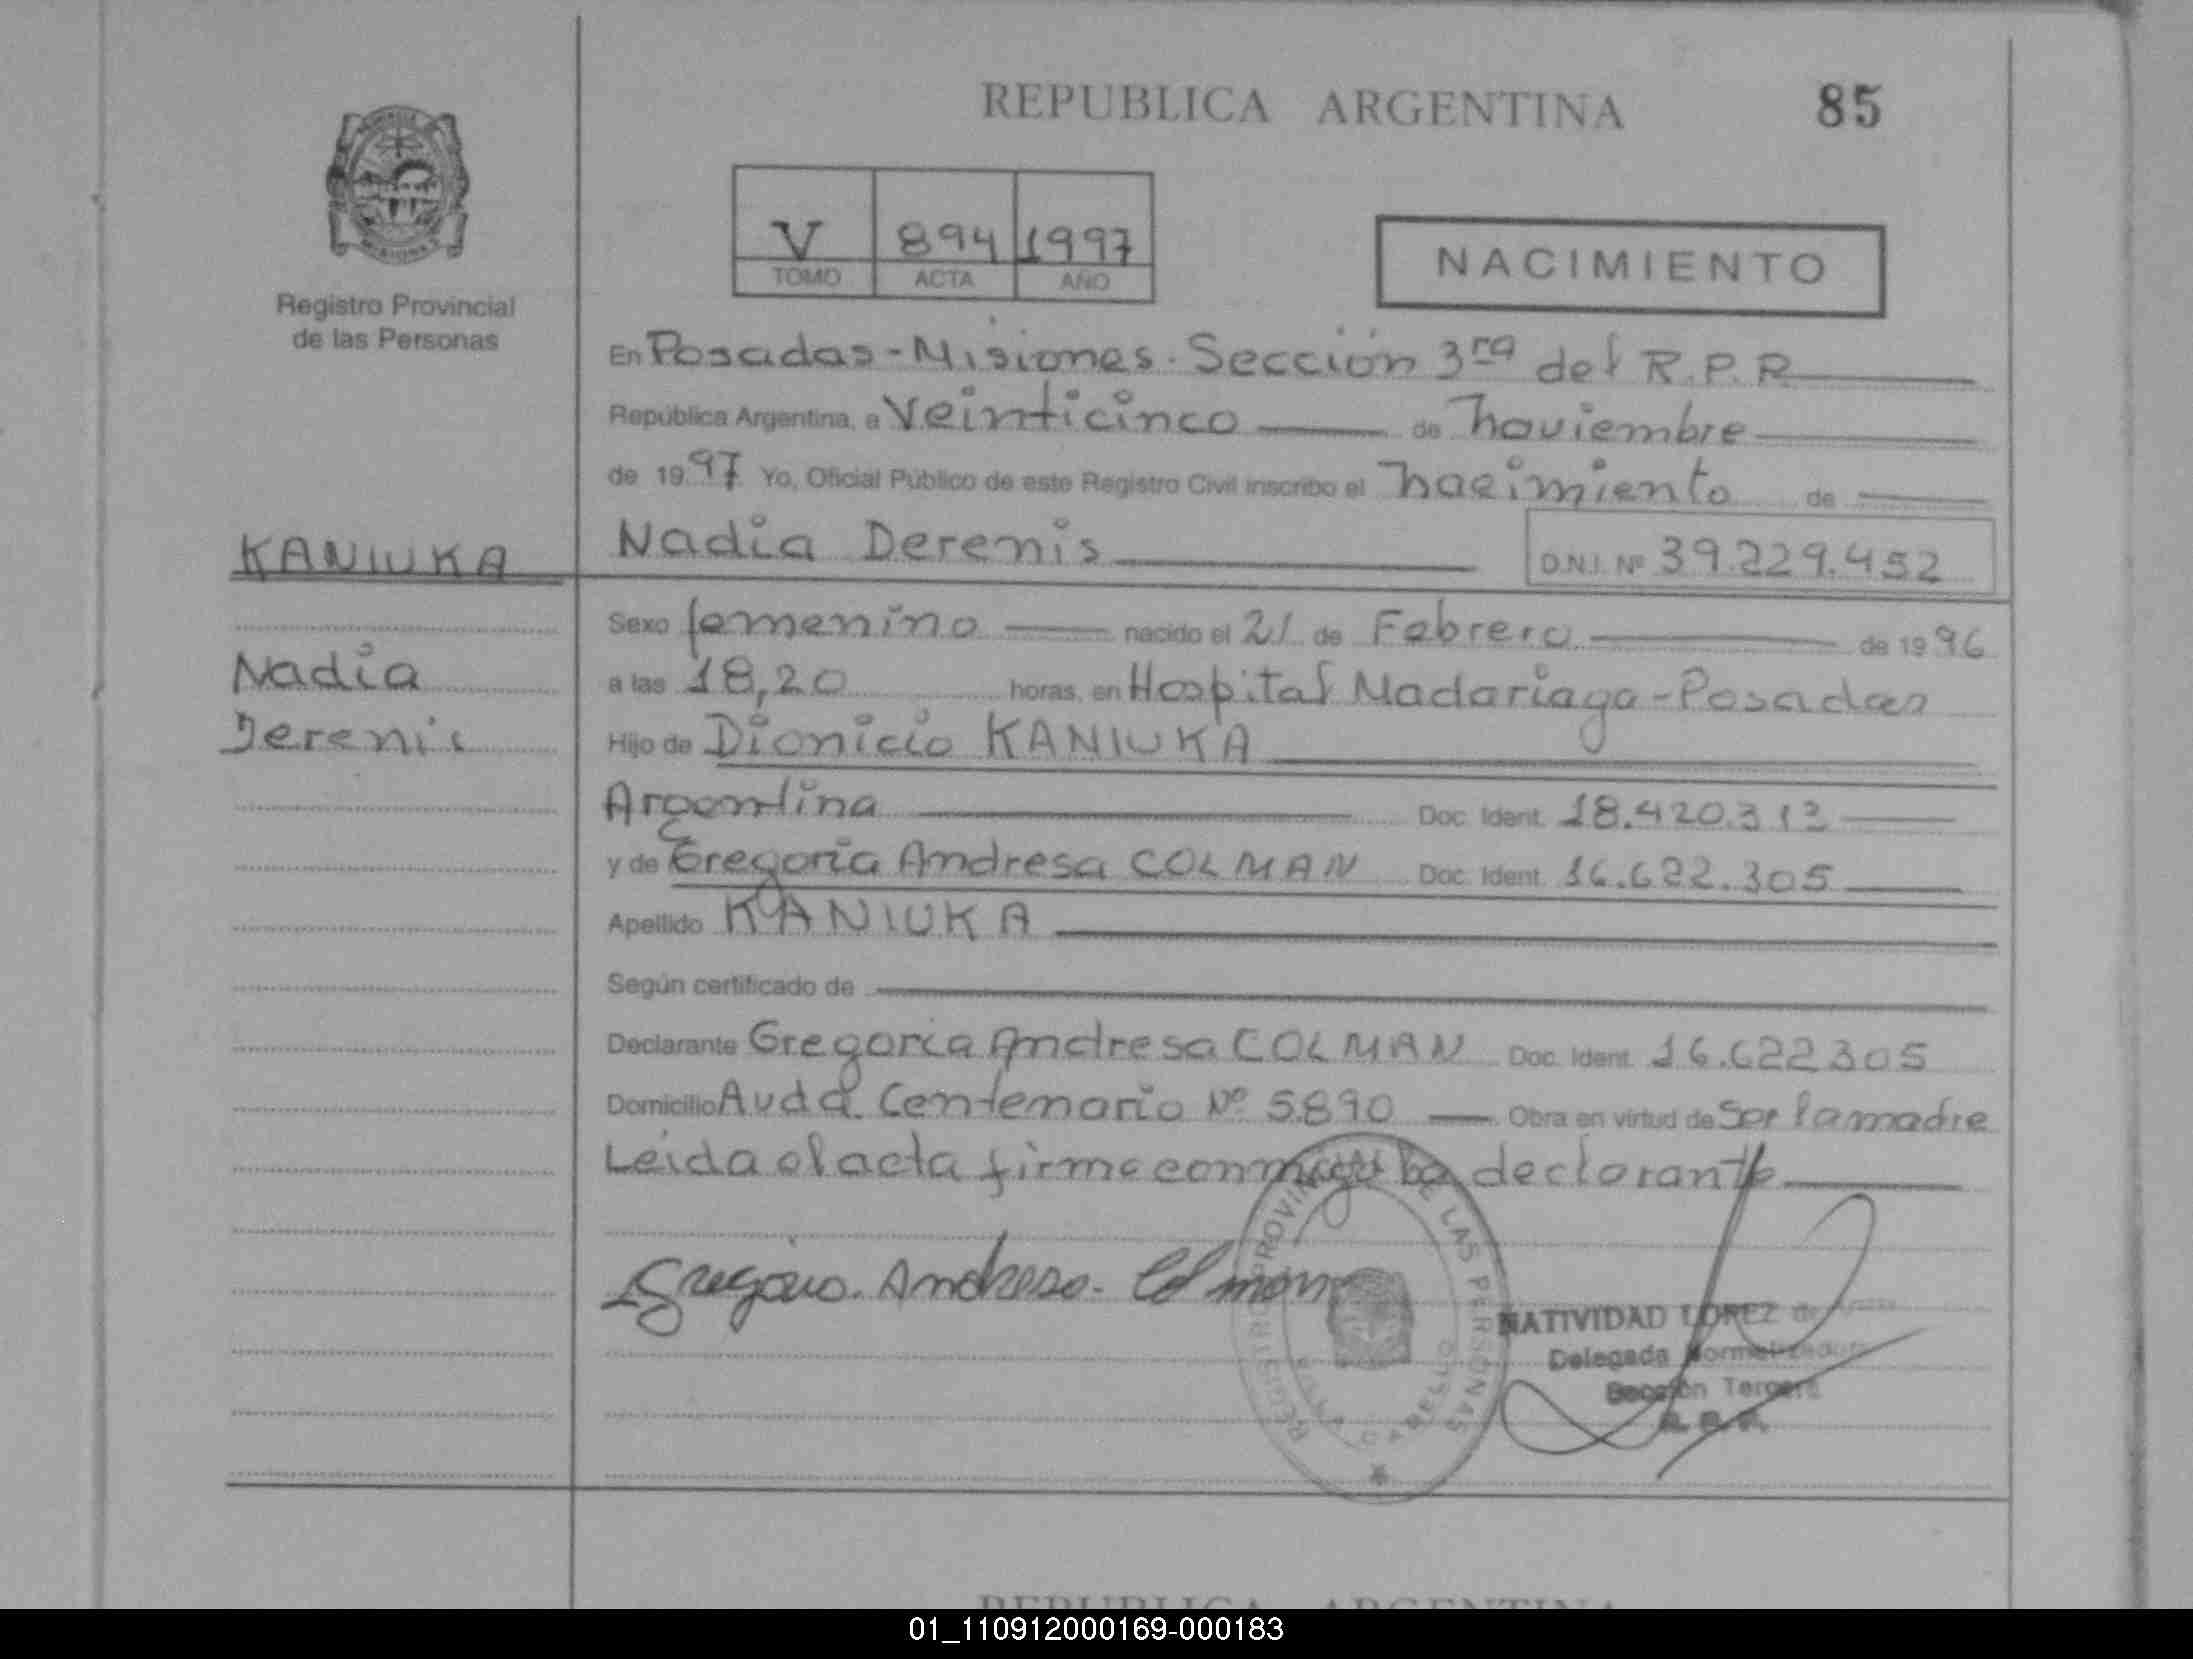 REPUBLICA ARGENTINA 85
Registro Provincial
de las Personas
V 894 1997
TOMO ACTA AÑO
NACIMIENTO
En Posadas - Misiones - Sección 3ra del R.P.P.
República Argentina, a Veinticinco de noviembre
de 1997 Yo, Oficial Público de este Registro Civil inscribo el nacimiento de
KANIUKA
Nadia Derenis D.N.I. Nº 39.229.452
Sexo femenino nacido el 21 de Febrero de 1996
Nadia
a las 18,20 horas, en Hospital Madariaga - Posadas
Derenis
Hijo de Dionicio KANIUKA
Argentina Doc. Ident. 18.420.313
y de Gregoria Andresa COLMAN Doc. Ident. 16.622.305
Apellido KANIUKA
Según certificado de
Declarante Gregoria Andresa COLMAN Doc. Ident. 16.622305
Domicilio Avda. Centenario Nº 5890 Obra en virtud de Ser la madre
Leida el acta firma conmigo la declarante
Gregoria. Andresa. Colman
REGISTRO PROVINCIAL DE LAS PERSONAS
NATIVIDAD LOPEZ de
Delegada Normalizadora
Sección Tercera
R. P. P.
REPUBLICA ARGENTINA
01_110912000169-000183